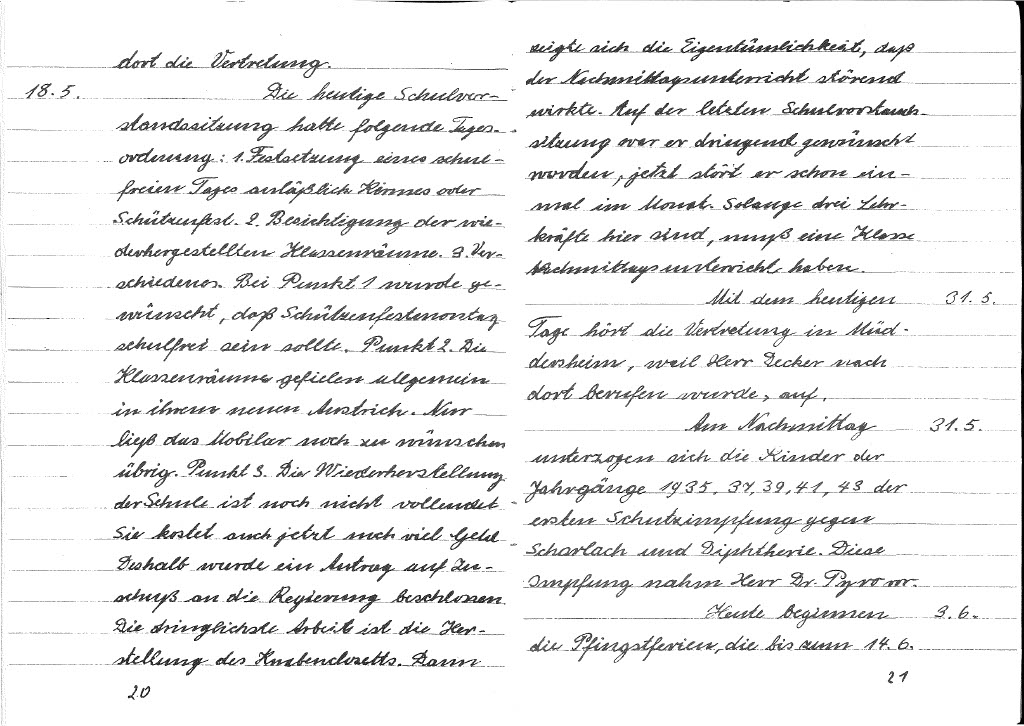 dort die Vertretung.
18.5. Die heutige Schulvor-
standssitzung hatte folgende Tages-
ordnung: 1. Festsetzung eines schul-
freien Tages anläßlich Kirmes oder
Schützenfest. 2. Besichtigung der wie-
derhergestellten Klassenräume. 3. Ver-
schiedenes. Bei Punkt 1 wurde ge-
wünscht, daß Schützenfestmontag
schulfrei sein sollte. Punkt 2. Die
Klassenräume gefielen allgemein
in ihrem neuen Anstrich. Nur
ließ das Mobilar noch zu wünschen
übrig. Punkt 3. Die Wiederherstellung
der Schule ist noch nicht vollendet
Sie kostet auch jetzt noch viel Geld
Deshalb wurde ein Antrag auf Zu-
schuß an die Regierung beschlossen.
Die dringlichste Arbeit ist die Her-
stellung des Knabenclosetts. Dann
20
zeigte sich die Eigentümlichkeit, daß
der Nachmittagsunterricht störend
wirkte. Auf der letzten Schulvorstands-
sitzung war er dringend gewünscht
worden, jetzt stört er schon ein-
mal im Monat. Solange drei Lehr-
kräfte hier sind, muß eine Klasse
Nachmittagsunterricht haben.
Mit dem heutigen 31.5.
Tage hört die Vertretung in Müd-
dersheim, weil Herr Decker nach
dort berufen wurde, auf.
Am Nachmittag 31.5.
unterzogen sich die Kinder der
Jahrgänge 1935, 37, 39, 41, 43 der
ersten Schutzimpfung gegen
Scharlach und Diphtherie. Diese
Impfung nahm Herr Dr. Pyro vor.
Heute beginnen 3.6.
die Pfingstferien, die bis zum 14.6.
21